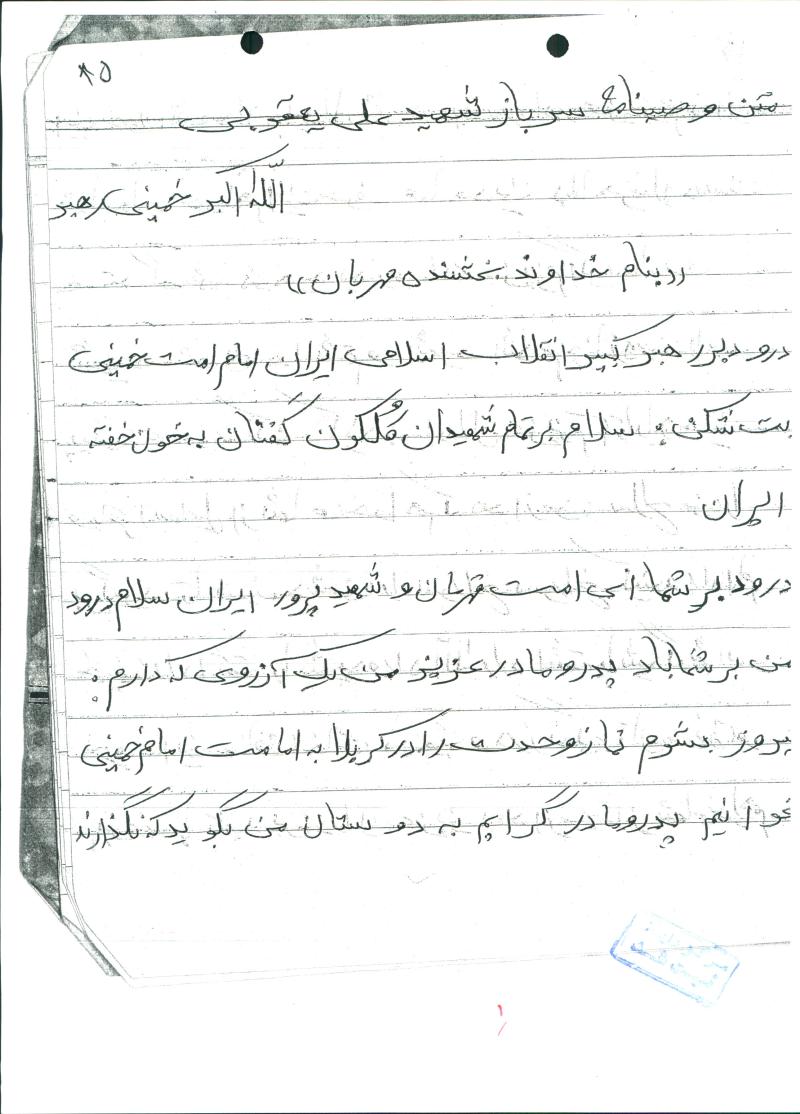 ۸۵
متن وصیتنامه سرباز شهید علی یعقوبی
الله اکبر خمینی رهبر
((بنام خداوند بخشنده مهربان))
درود بر رهبر کبیر انقلاب اسلامی ایران امام امت خمینی
بت شکن . سلام بر تمام شهیدان گلگون کفنان به خون خفته
ایران
درود بر شما ای امت قهرمان و شهید پرور ایران سلام درود
من بر شما باد پدر و مادر عزیز من یک آرزوی که دارم :
پیروز بشوم نماز وحدت را در کربلا به امامت امام خمینی
بخوانیم پدر و مادر گرایم به دوستان من بگویید که نگذارند
۱